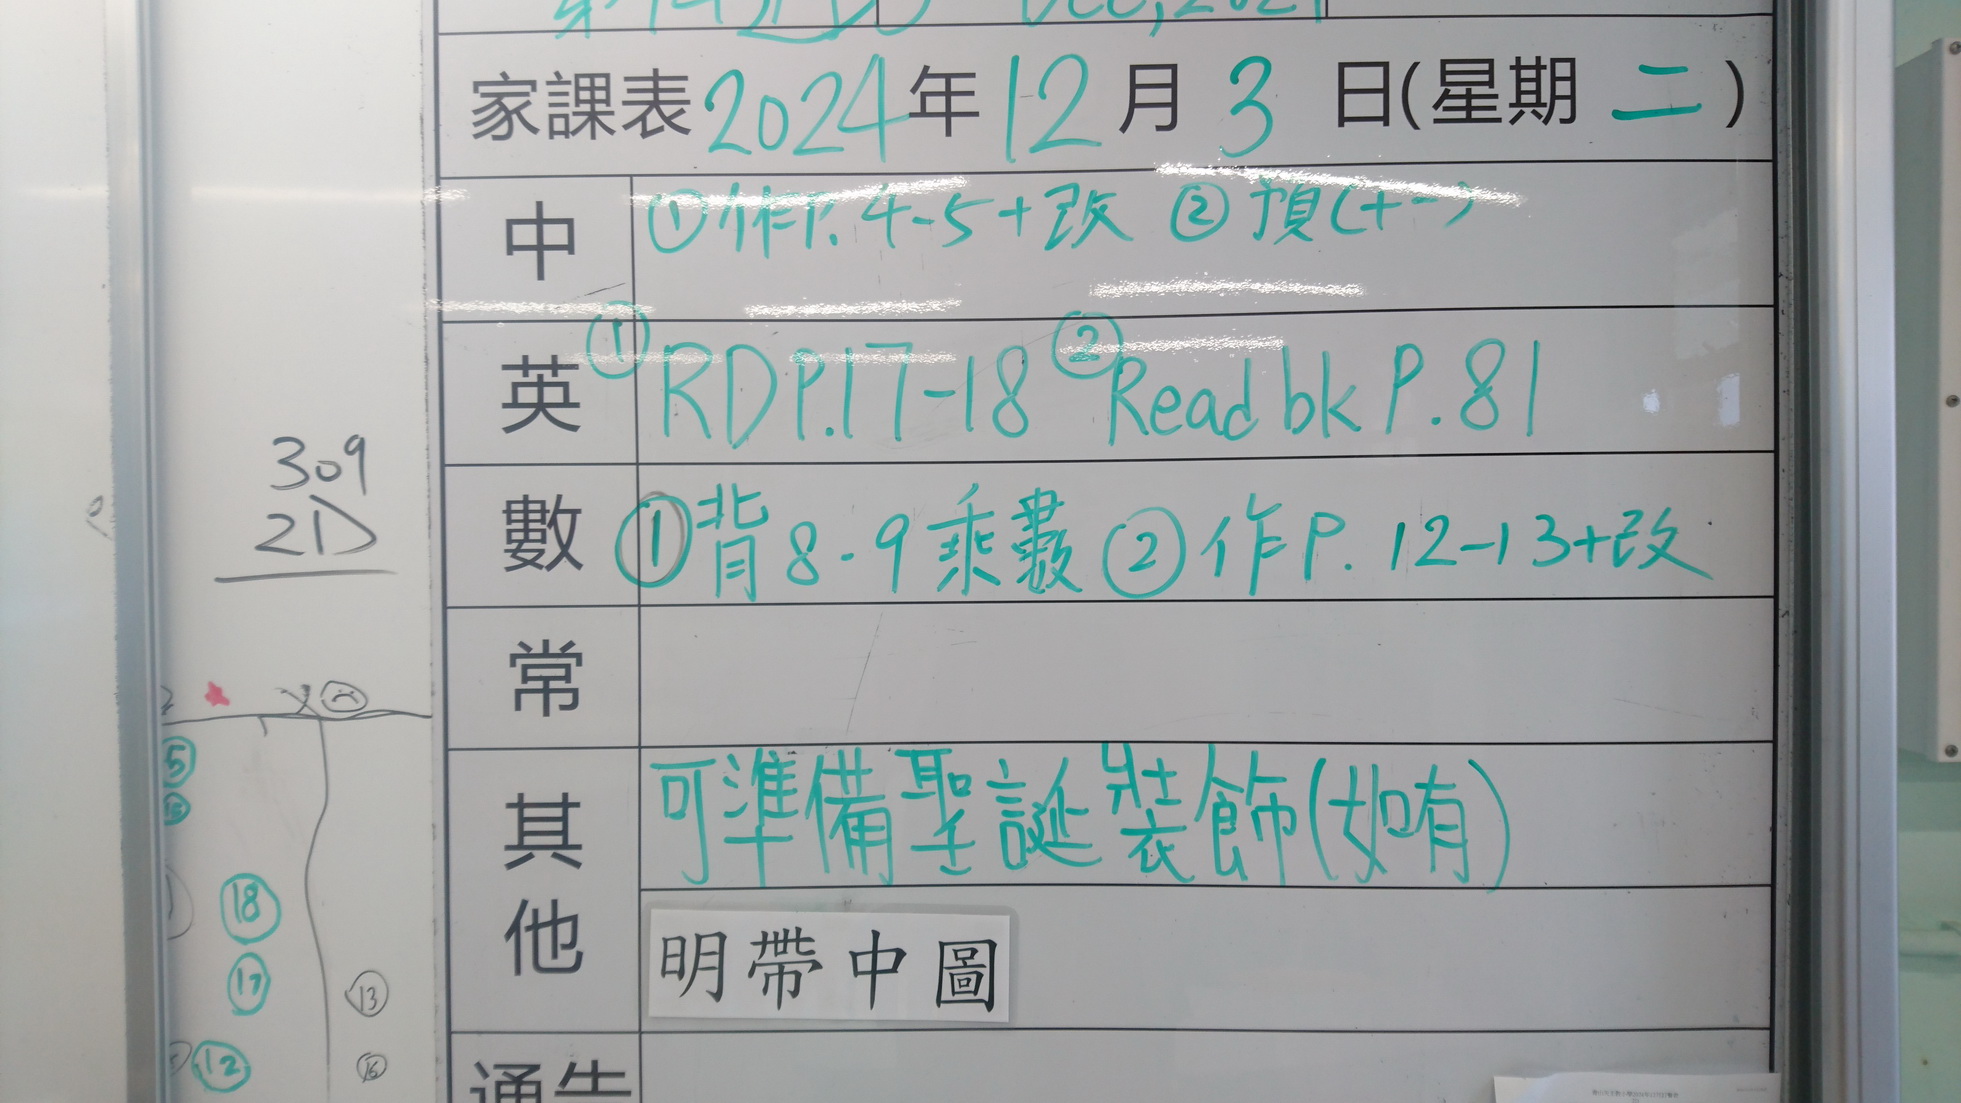 家課表 2024 年 12 月 3 日(星期 二)
中 ① 作P. 4-5+改 ② 預(十一)
英 ① RD P.17-18 ② Read bk P.81
數 ① 背 8-9 乘數 ② 作 P. 12-13+改
常
其他 可準備聖誕裝飾(如有)
明帶中圖
通告
309
2D
5
18
17
13
12